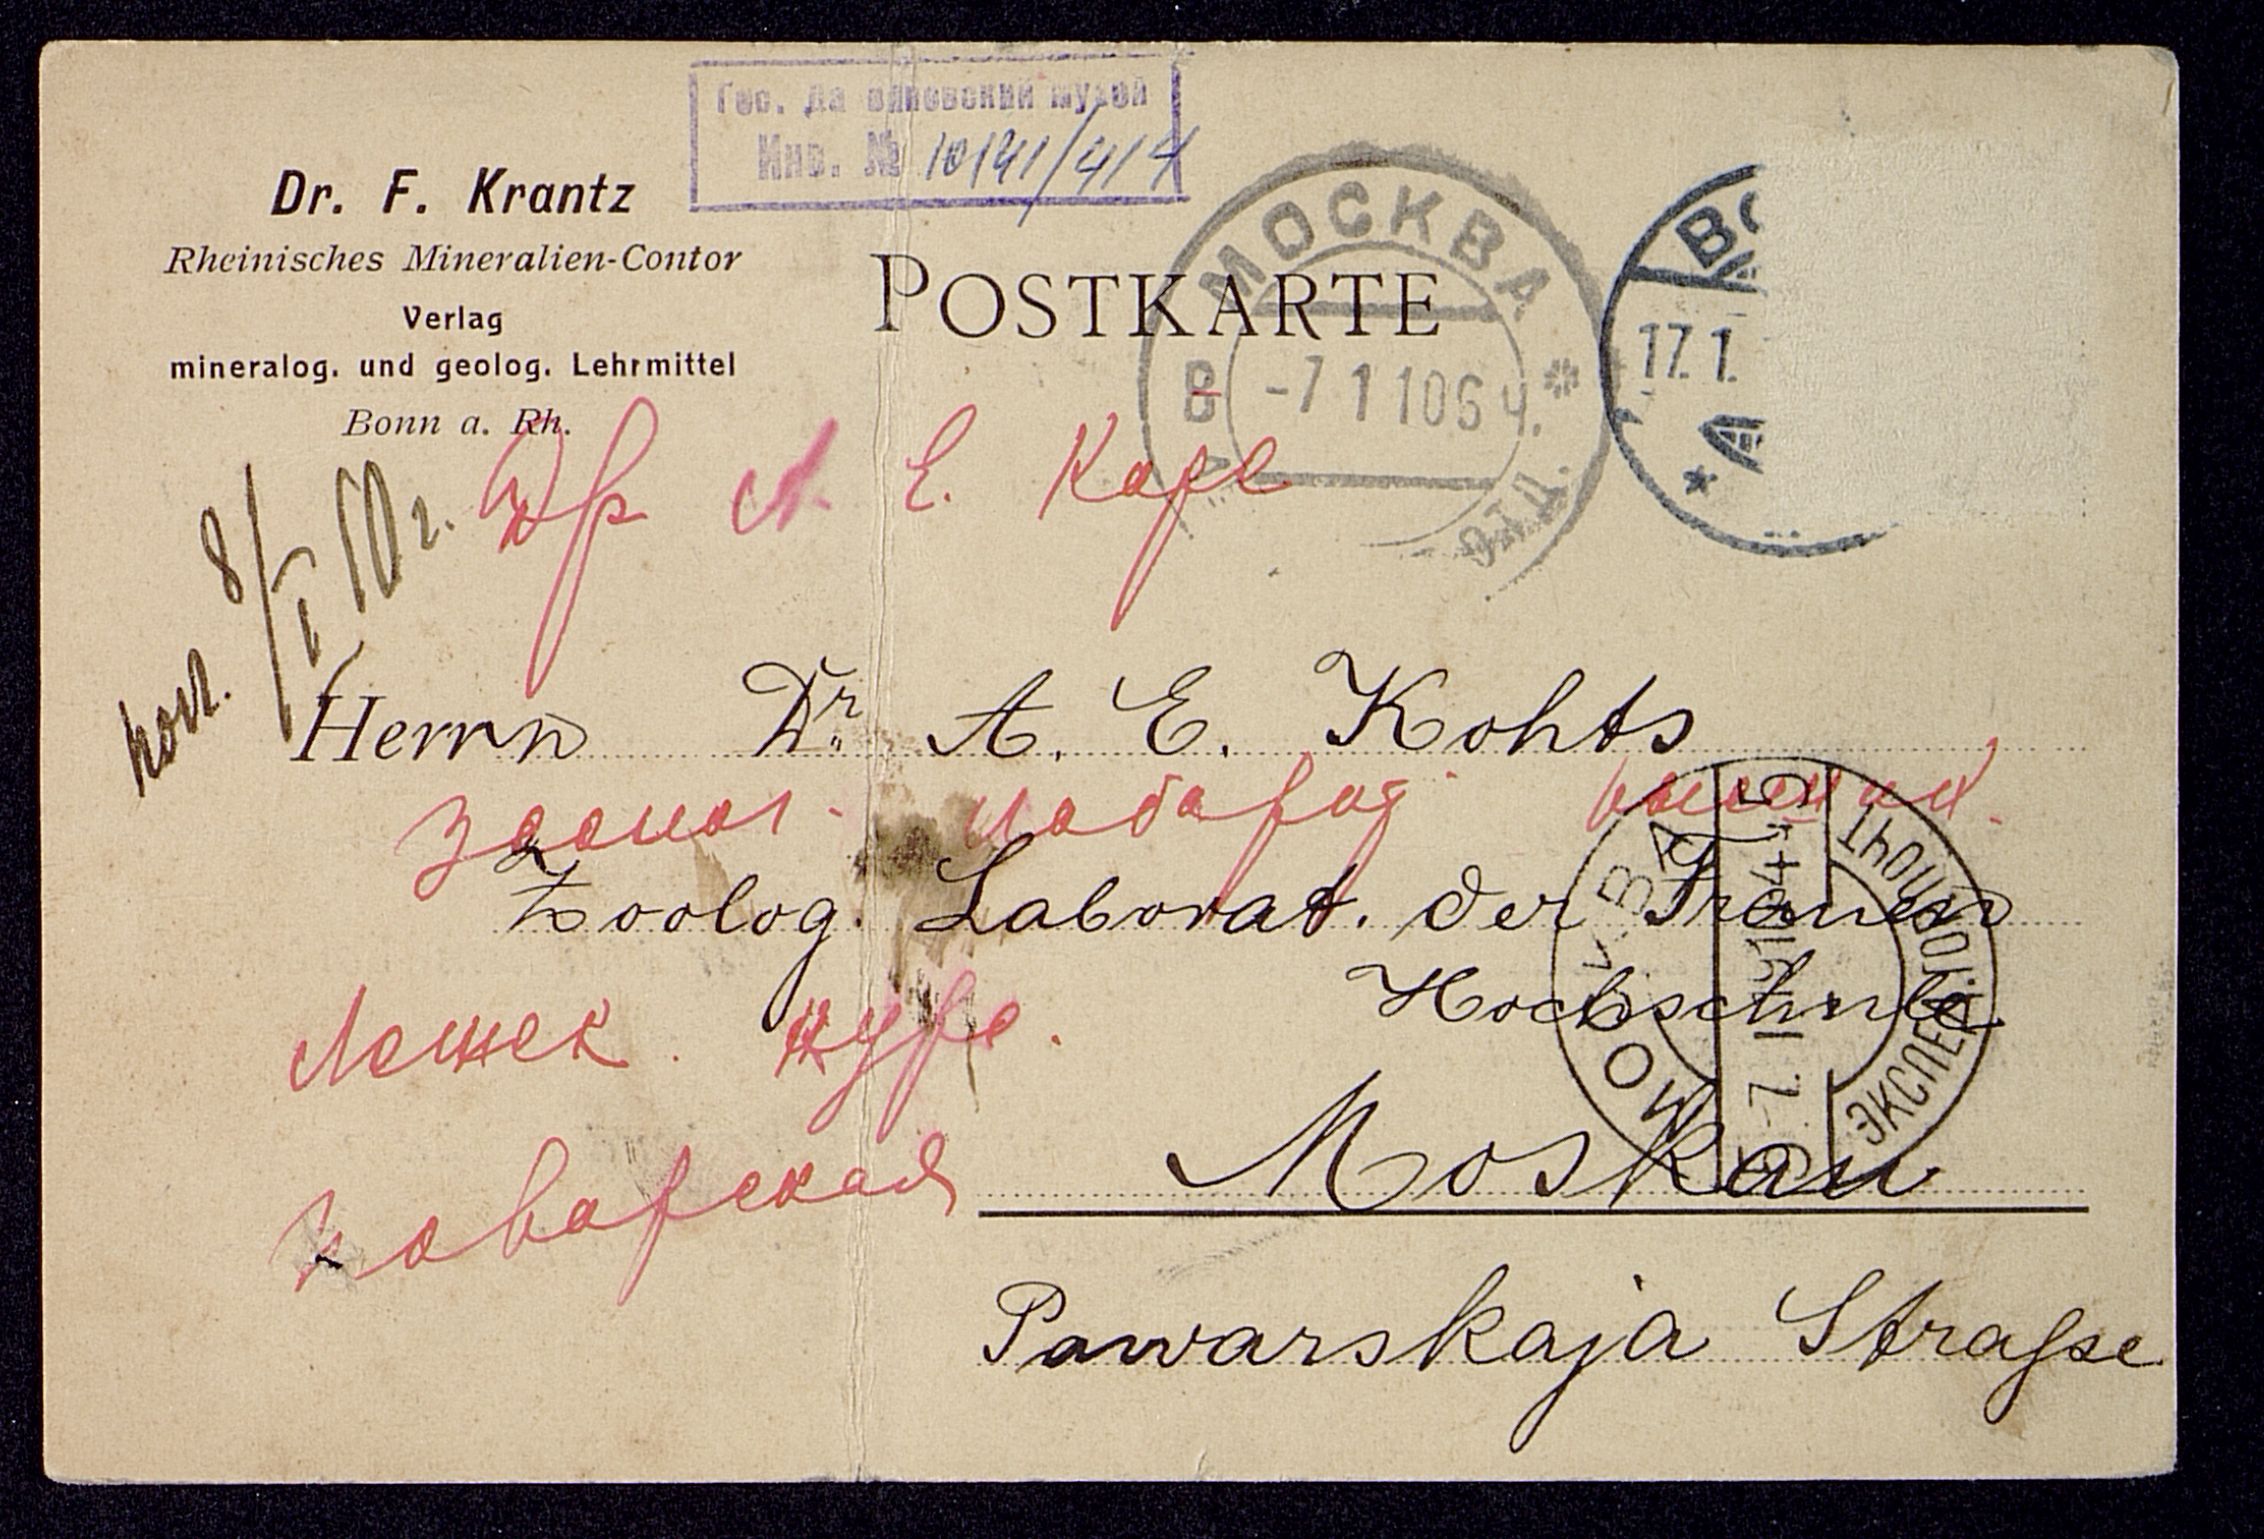 Гос. Дарвиновский музей
Инв. № 10141/414
Dr. F. Krantz
Rheinisches Mineralien-Contor
Verlag
mineralog. und geolog. Lehrmittel
Bonn a. Rh.
POSTKARTE
МОСКВА
8 -7 1 10 6 ч.
ОТД.
17.1.
Др А. Е. Коре
пол. 8/I 10 г.
Herrn Dr. A. E. Kohts
Зоолог. Лаборат
Zoolog. Laborat. der Frauen
Hochschule
Женск. курс.
Moskau
МОСКВА
ЭКСПЕД.
Поварская
Pawarskaja Strasse